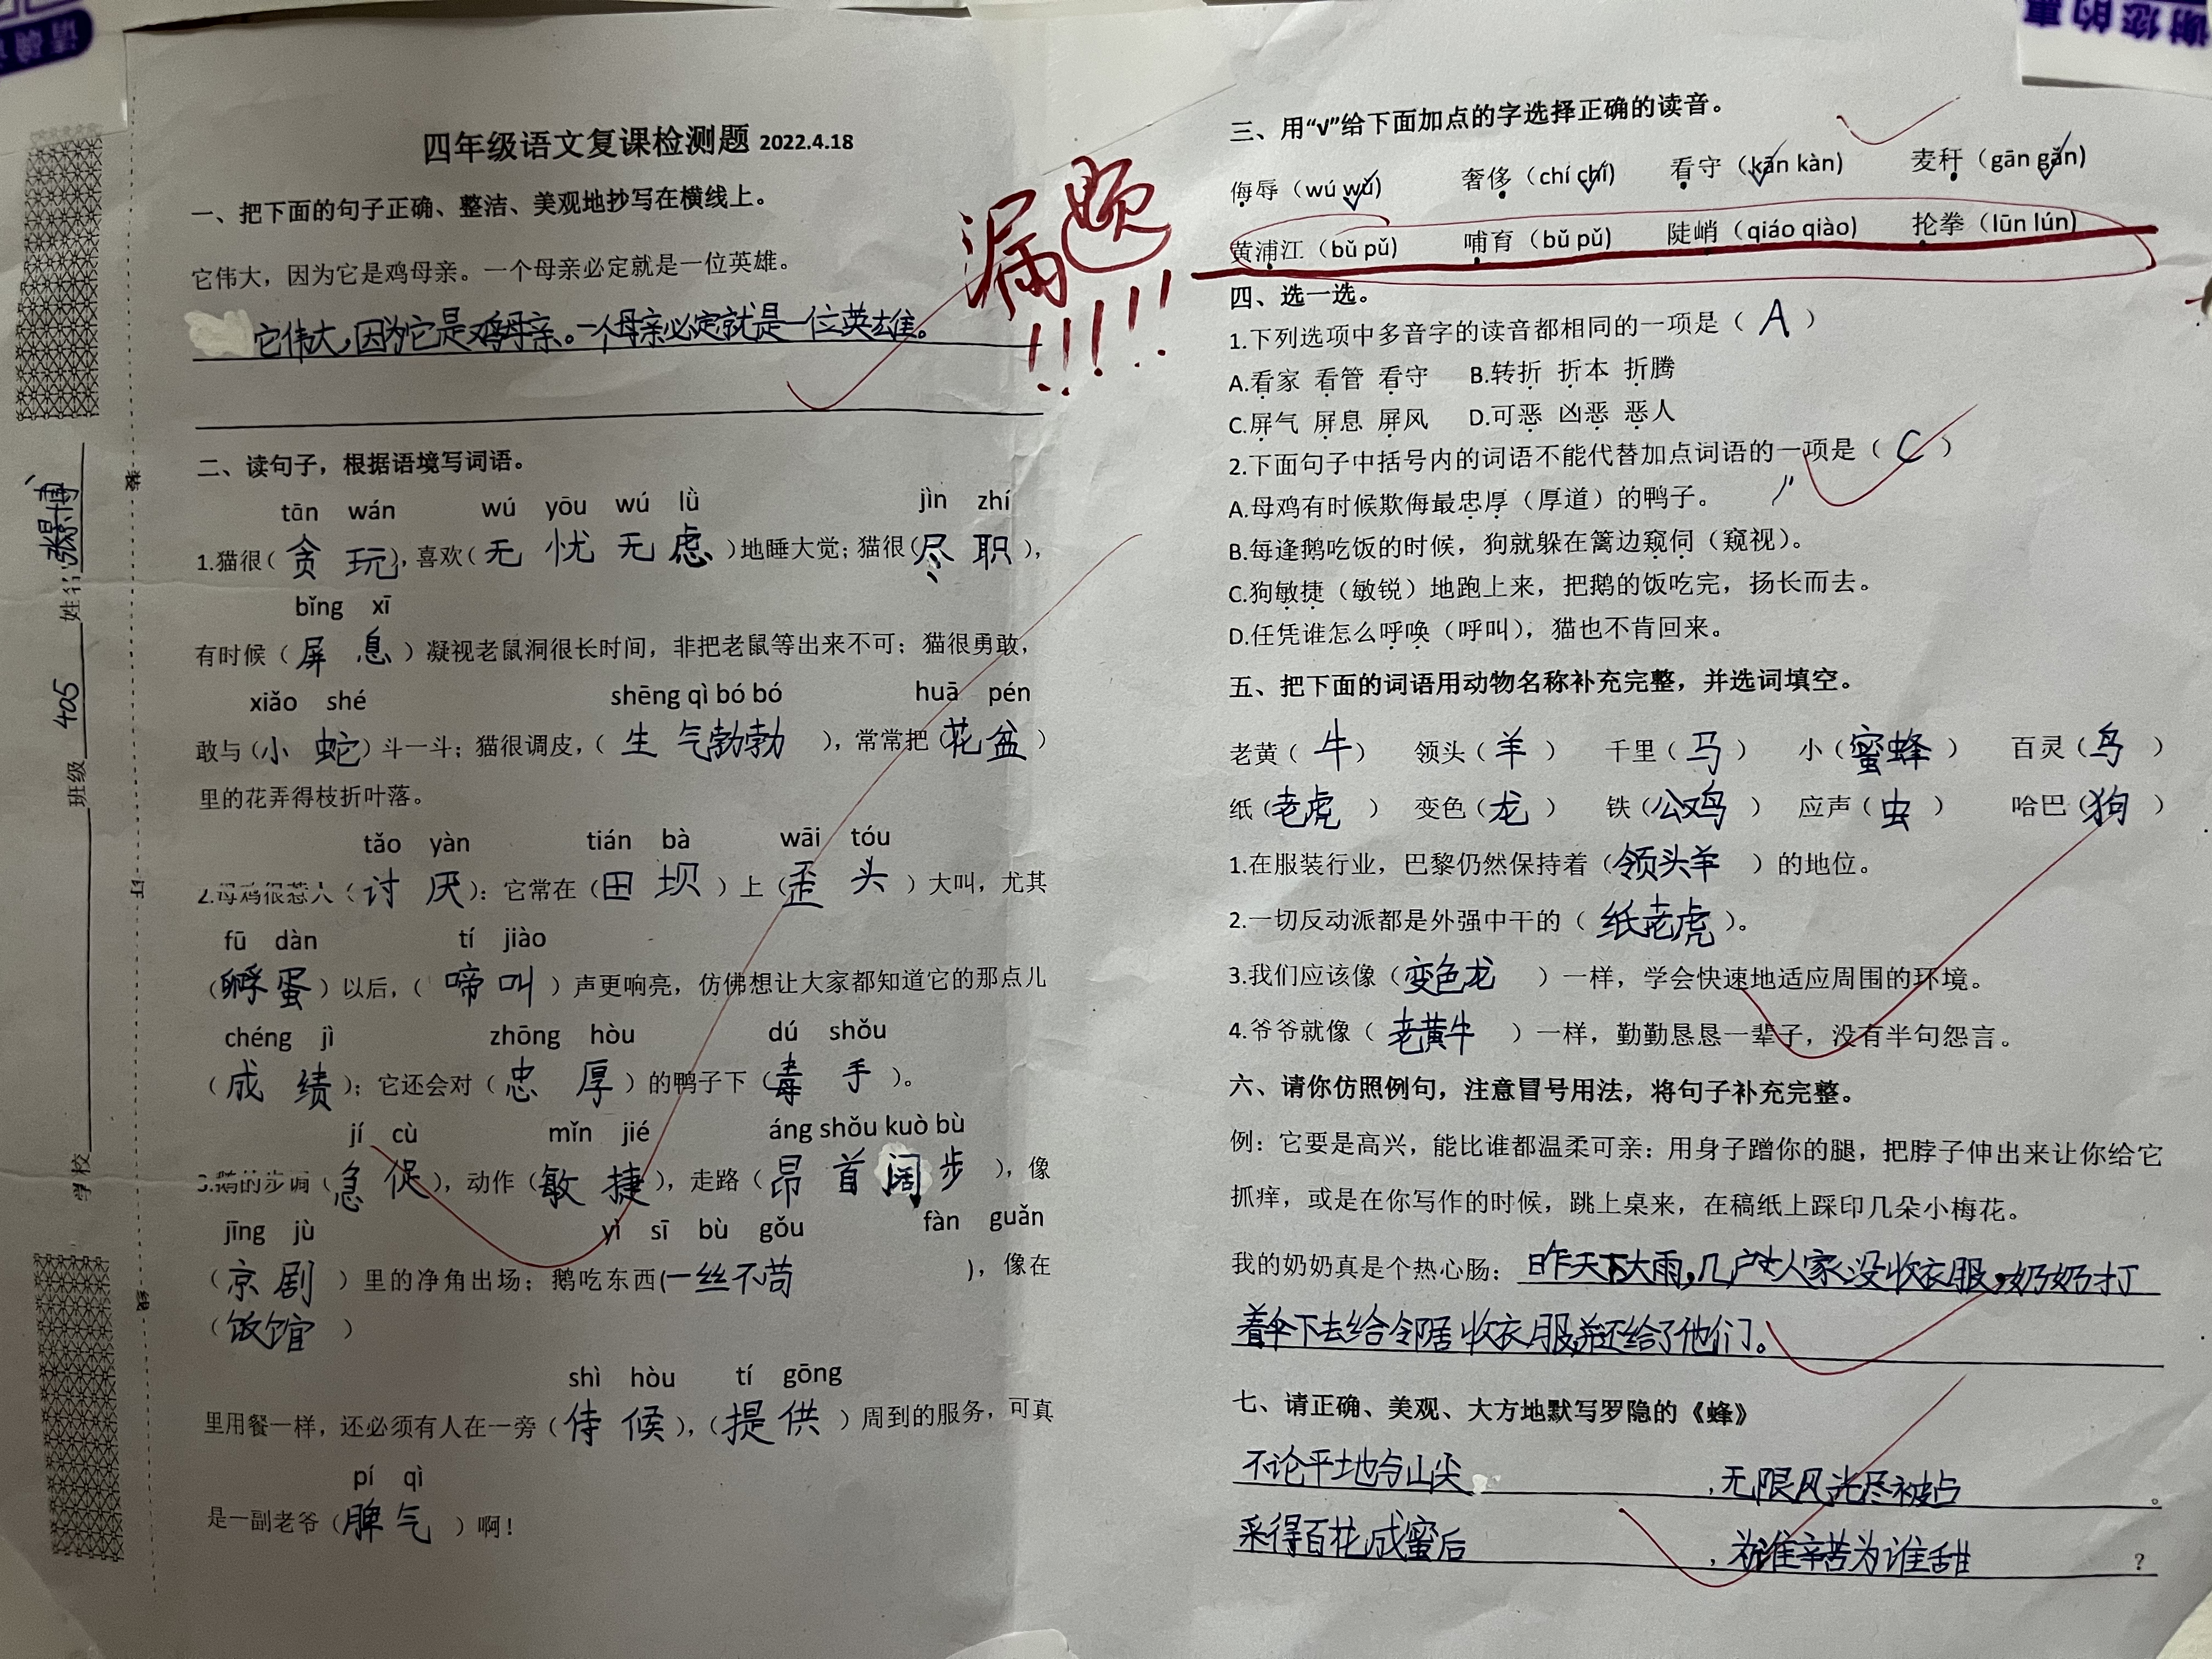 四年级语文复课检测题 2022.4.18
一、把下面的句子正确、整洁、美观地抄写在横线上。
它伟大，因为它是鸡母亲。一个母亲必定就是一位英雄。
它伟大，因为它是鸡母亲。一个母亲必定就是一位英雄。
漏题!!!!
二、读句子，根据语境写词语。
tān wán wú yōu wú lǜ jìn zhí
1.猫很（贪玩），喜欢（无忧无虑）地睡大觉；猫很（尽职），
bǐng xī
有时候（屏息）凝视老鼠洞很长时间，非把老鼠等出来不可；猫很勇敢，
xiǎo shé shēng qì bó bó huā pén
敢与（小蛇）斗一斗；猫很调皮，（生气勃勃），常常把（花盆）
里的花弄得枝折叶落。
tǎo yàn tián bà wāi tóu
2.母鸡很惹人（讨厌）：它常在（田坝）上（歪头）大叫，尤其
fū dàn tí jiào
（孵蛋）以后，（啼叫）声更响亮，仿佛想让大家都知道它的那点儿
chéng jì zhōng hòu dú shǒu
（成绩）；它还会对（忠厚）的鸭子下（毒手）。
jí cù mǐn jié áng shǒu kuò bù
3.鹅的步调（急促），动作（敏捷），走路（昂首阔步），像
jīng jù yì sī bù gǒu fàn guǎn
（京剧）里的净角出场；鹅吃东西(一丝不苟），像在
（饭馆）
shì hòu tí gōng
里用餐一样，还必须有人在一旁（侍候），（提供）周到的服务，可真
pí qì
是一副老爷（脾气）啊！
学校 班级 405 姓名
装
订
线
三、用“√”给下面加点的字选择正确的读音。
侮辱（wú wǔ） 奢侈（chí chǐ） 看守（kān kàn） 麦秆（gān gǎn）
黄浦江（bǔ pǔ） 哺育（bǔ pǔ） 陡峭（qiáo qiào） 抡拳（lūn lún）
四、选一选。
1.下列选项中多音字的读音都相同的一项是（A）
A.看家 看管 看守 B.转折 折本 折腾
C.屏气 屏息 屏风 D.可恶 凶恶 恶人
2.下面句子中括号内的词语不能代替加点词语的一项是（C）
A.母鸡有时候欺侮最忠厚（厚道）的鸭子。
B.每逢鹅吃饭的时候，狗就躲在篱边窥伺（窥视）。
C.狗敏捷（敏锐）地跑上来，把鹅的饭吃完，扬长而去。
D.任凭谁怎么呼唤（呼叫），猫也不肯回来。
五、把下面的词语用动物名称补充完整，并选词填空。
老黄（牛） 领头（羊） 千里（马） 小（蜜蜂） 百灵（鸟）
纸（老虎） 变色（龙） 铁（公鸡） 应声（虫） 哈巴（狗）
1.在服装行业，巴黎仍然保持着（领头羊）的地位。
2.一切反动派都是外强中干的（纸老虎）。
3.我们应该像（变色龙）一样，学会快速地适应周围的环境。
4.爷爷就像（老黄牛）一样，勤勤恳恳一辈子，没有半句怨言。
六、请你仿照例句，注意冒号用法，将句子补充完整。
例：它要是高兴，能比谁都温柔可亲：用身子蹭你的腿，把脖子伸出来让你给它
抓痒，或是在你写作的时候，跳上桌来，在稿纸上踩印几朵小梅花。
我的奶奶真是个热心肠：昨天下大雨，几户人家没收衣服，奶奶打
着伞下去给邻居收衣服，并还给了他们。
七、请正确、美观、大方地默写罗隐的《蜂》
不论平地与山尖，无限风光尽被占。
采得百花成蜜后，为谁辛苦为谁甜？